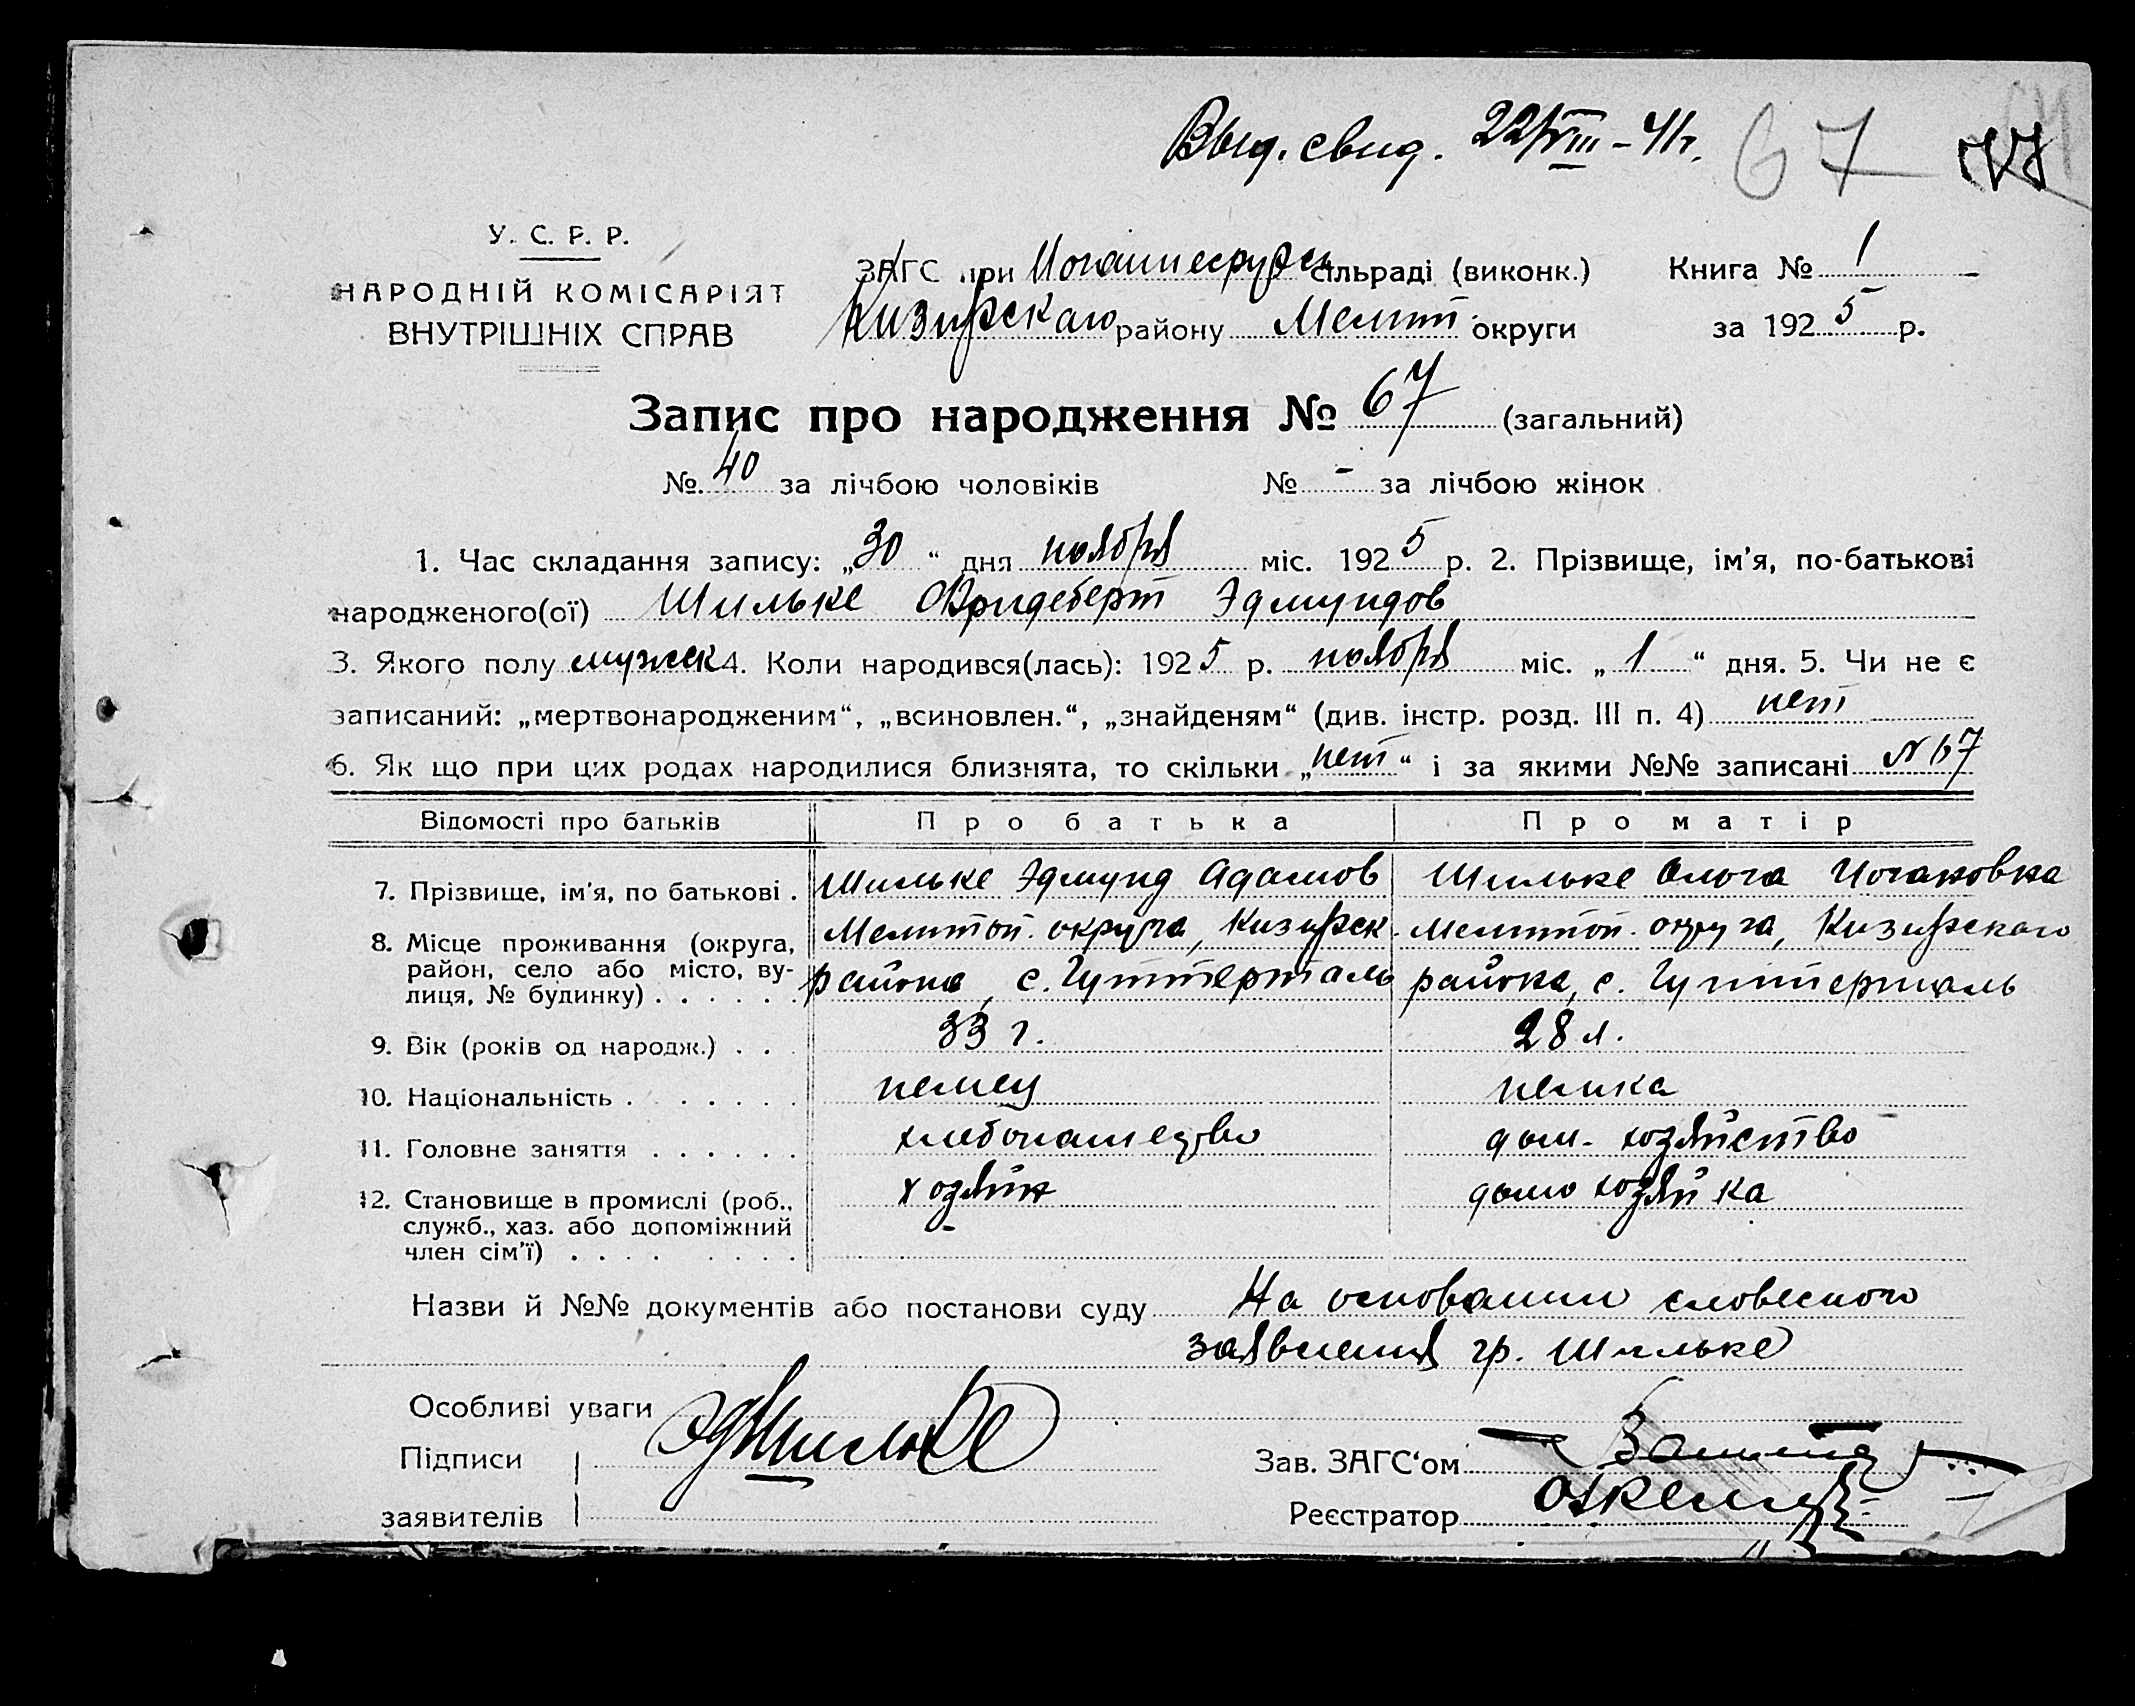 Выд. свид. 22/VIII – 41 г. 67
У. С. Р. Р.
НАРОДНІЙ КОМІСАРІЯТ
ВНУТРІШНІХ СПРАВ
ЗАГС при Иоганнесруэск сільраді (виконк.) Книга № 1
Кизиярскаго району Мелит. округи за 1925 р.
Запис про народження № 67 (загальний)
№ 40 за лічбою чоловіків № - за лічбою жінок
1. Час складання запису: „30“ дня ноября міс. 1925 р. 2. Прізвище, ім'я, по-батькові
народженого(ої) Шильке Фридеберт Эдмундов
3. Якого полу мужск 4. Коли народився(лась): 1925 р. ноября міс. „1“ дня. 5. Чи не є
записаний: „мертвонародженим“, „всиновлен.“, „знайденям“ (див. інстр. розд. III п. 4) нет
6. Як що при цих родах народилися близнята, то скільки „нет“ і за якими №№ записані N 67
Відомості про батьків Про батька Про матір
7. Прізвище, ім'я, по батькові . Шильке Эдмунд Адамов Шильке Ольга Иогановна
8. Місце проживання (округа, район, село або місто, вулиця, № будинку) . . . . . . Мелитоп. округа, Кизиярск. района, с. Гуттерталь Мелитоп. округа, Кизиярскаго района, с. Гуттерталь
9. Вік (років од народж.) . . 33 г. 28 л.
10. Національність . . . . . . . немец немка
11. Головне заняття . . . . . . хлебопашество дом. хозяйство
12. Становище в промислі (роб., служб., хаз. або допоміжний член сім'ї) . . . . . . . . хозяин домохозяйка
Назви й №№ документів або постанови суду На основании словесного
заявления гр. Шильке
Особливі уваги
Підписи Эд Шильке Зав. ЗАГС'ом
заявителів Реєстратор